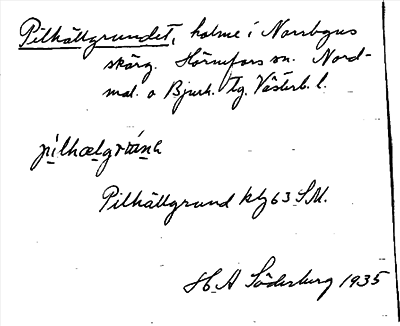 Pilhällgrundet, holme i Norrbyns
skärg. Hörnefors sn. Nord-
mal. o Bjurh. tg. Västerb. l.
Pilhällgrund kbg 63 S.M.
H. A Söderberg 1935